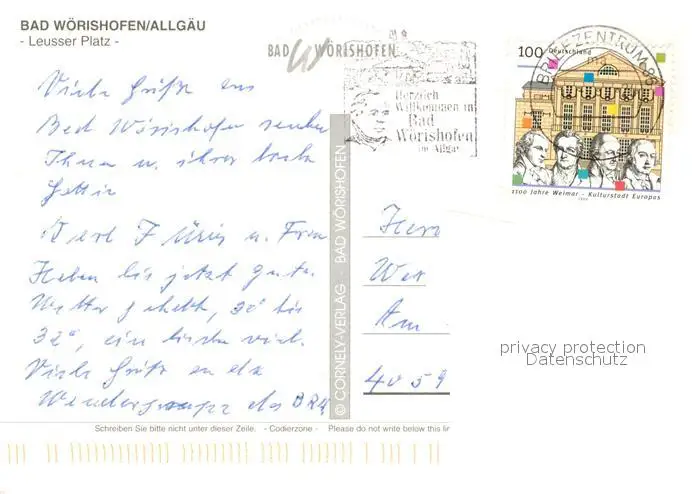 BAD WÖRISHOFEN/ALLGÄU
- Leusser Platz -
BAD WÖRISHOFEN
Herzlich
Willkommen in
Bad
Wörishofen
im Allgäu
BRIEFZENTRUM 86
100 Deutschland
1100 Jahre Weimar - Kulturstadt Europas
1999
Viele Grüße aus
Bad Wörishofen senden
Ihnen u. ihrer
Gattin
u. Frau
Haben bis jetzt gutes
Wetter gehabt, 30° bis
32°, ein bischen viel.
Viele Grüße an die
Wandergruppe des BRH
© CORNELY-VERLAG · BAD WÖRISHOFEN
Herr
Wer
Am
4059
privacy protection
Datenschutz
Schreiben Sie bitte nicht unter dieser Zeile. - Codierzone - Please do not write below this lin